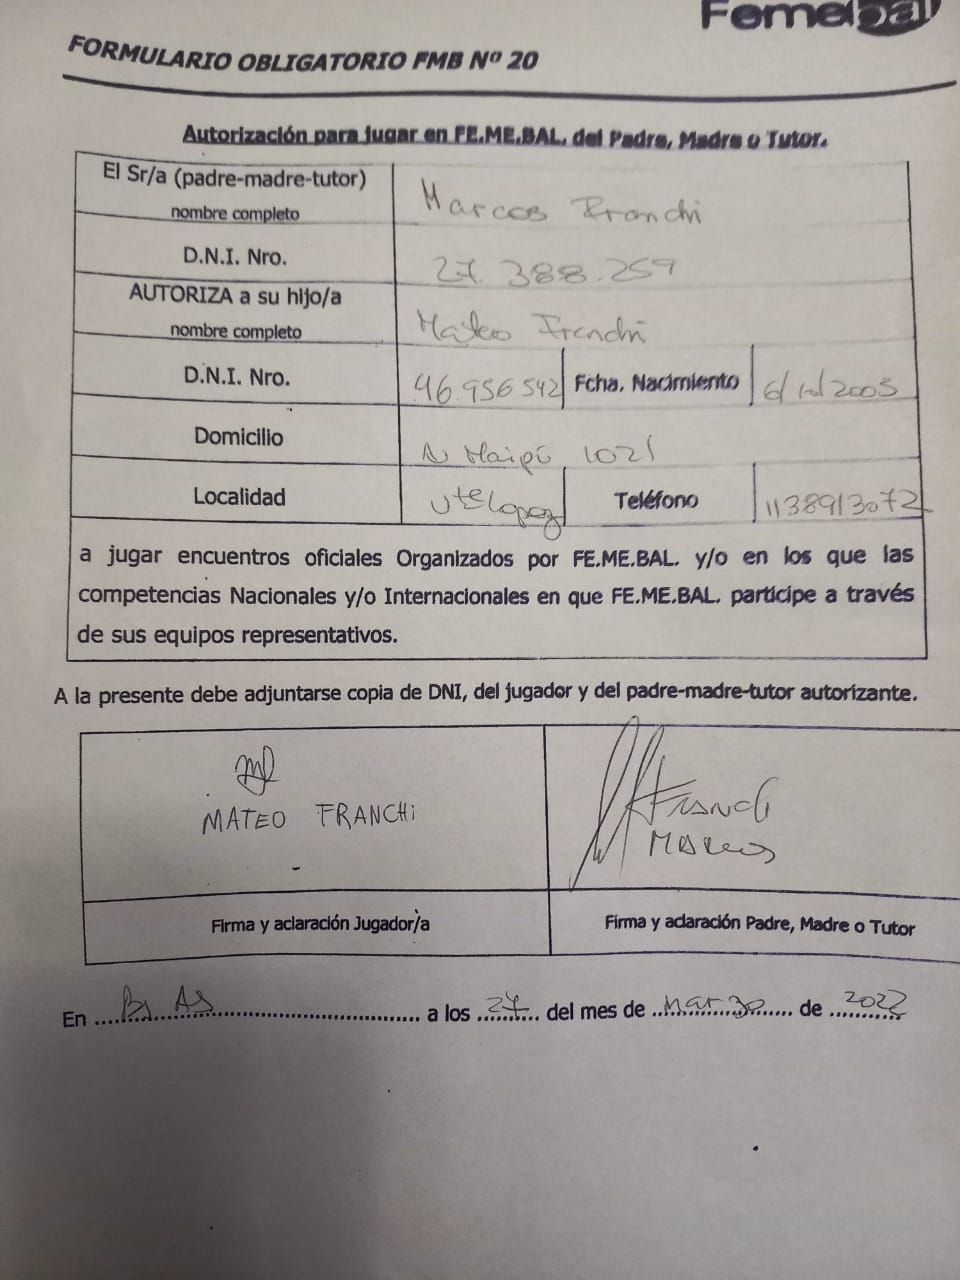 Femebal
FORMULARIO OBLIGATORIO FMB Nº 20
Autorización para jugar en FE.ME.BAL. del Padre, Madre o Tutor.
El Sr/a (padre-madre-tutor)
nombre completo
Marcos Franchi
D.N.I. Nro.
27.388.259
AUTORIZA a su hijo/a
nombre completo
Mateo Franchi
D.N.I. Nro.
46.956 542
Fcha. Nacimiento
6/10/2005
Domicilio
Av Maipú 1021
Localidad
Vte Lopez
Teléfono
1138913072
a jugar encuentros oficiales Organizados por FE.ME.BAL. y/o en los que las
competencias Nacionales y/o Internacionales en que FE.ME.BAL. participe a través
de sus equipos representativos.
A la presente debe adjuntarse copia de DNI, del jugador y del padre-madre-tutor autorizante.
MATEO FRANCHi
Franchi
Marcos
Firma y aclaración Jugador/a
Firma y aclaración Padre, Madre o Tutor
En Bs As a los 27 del mes de Marzo de 2022